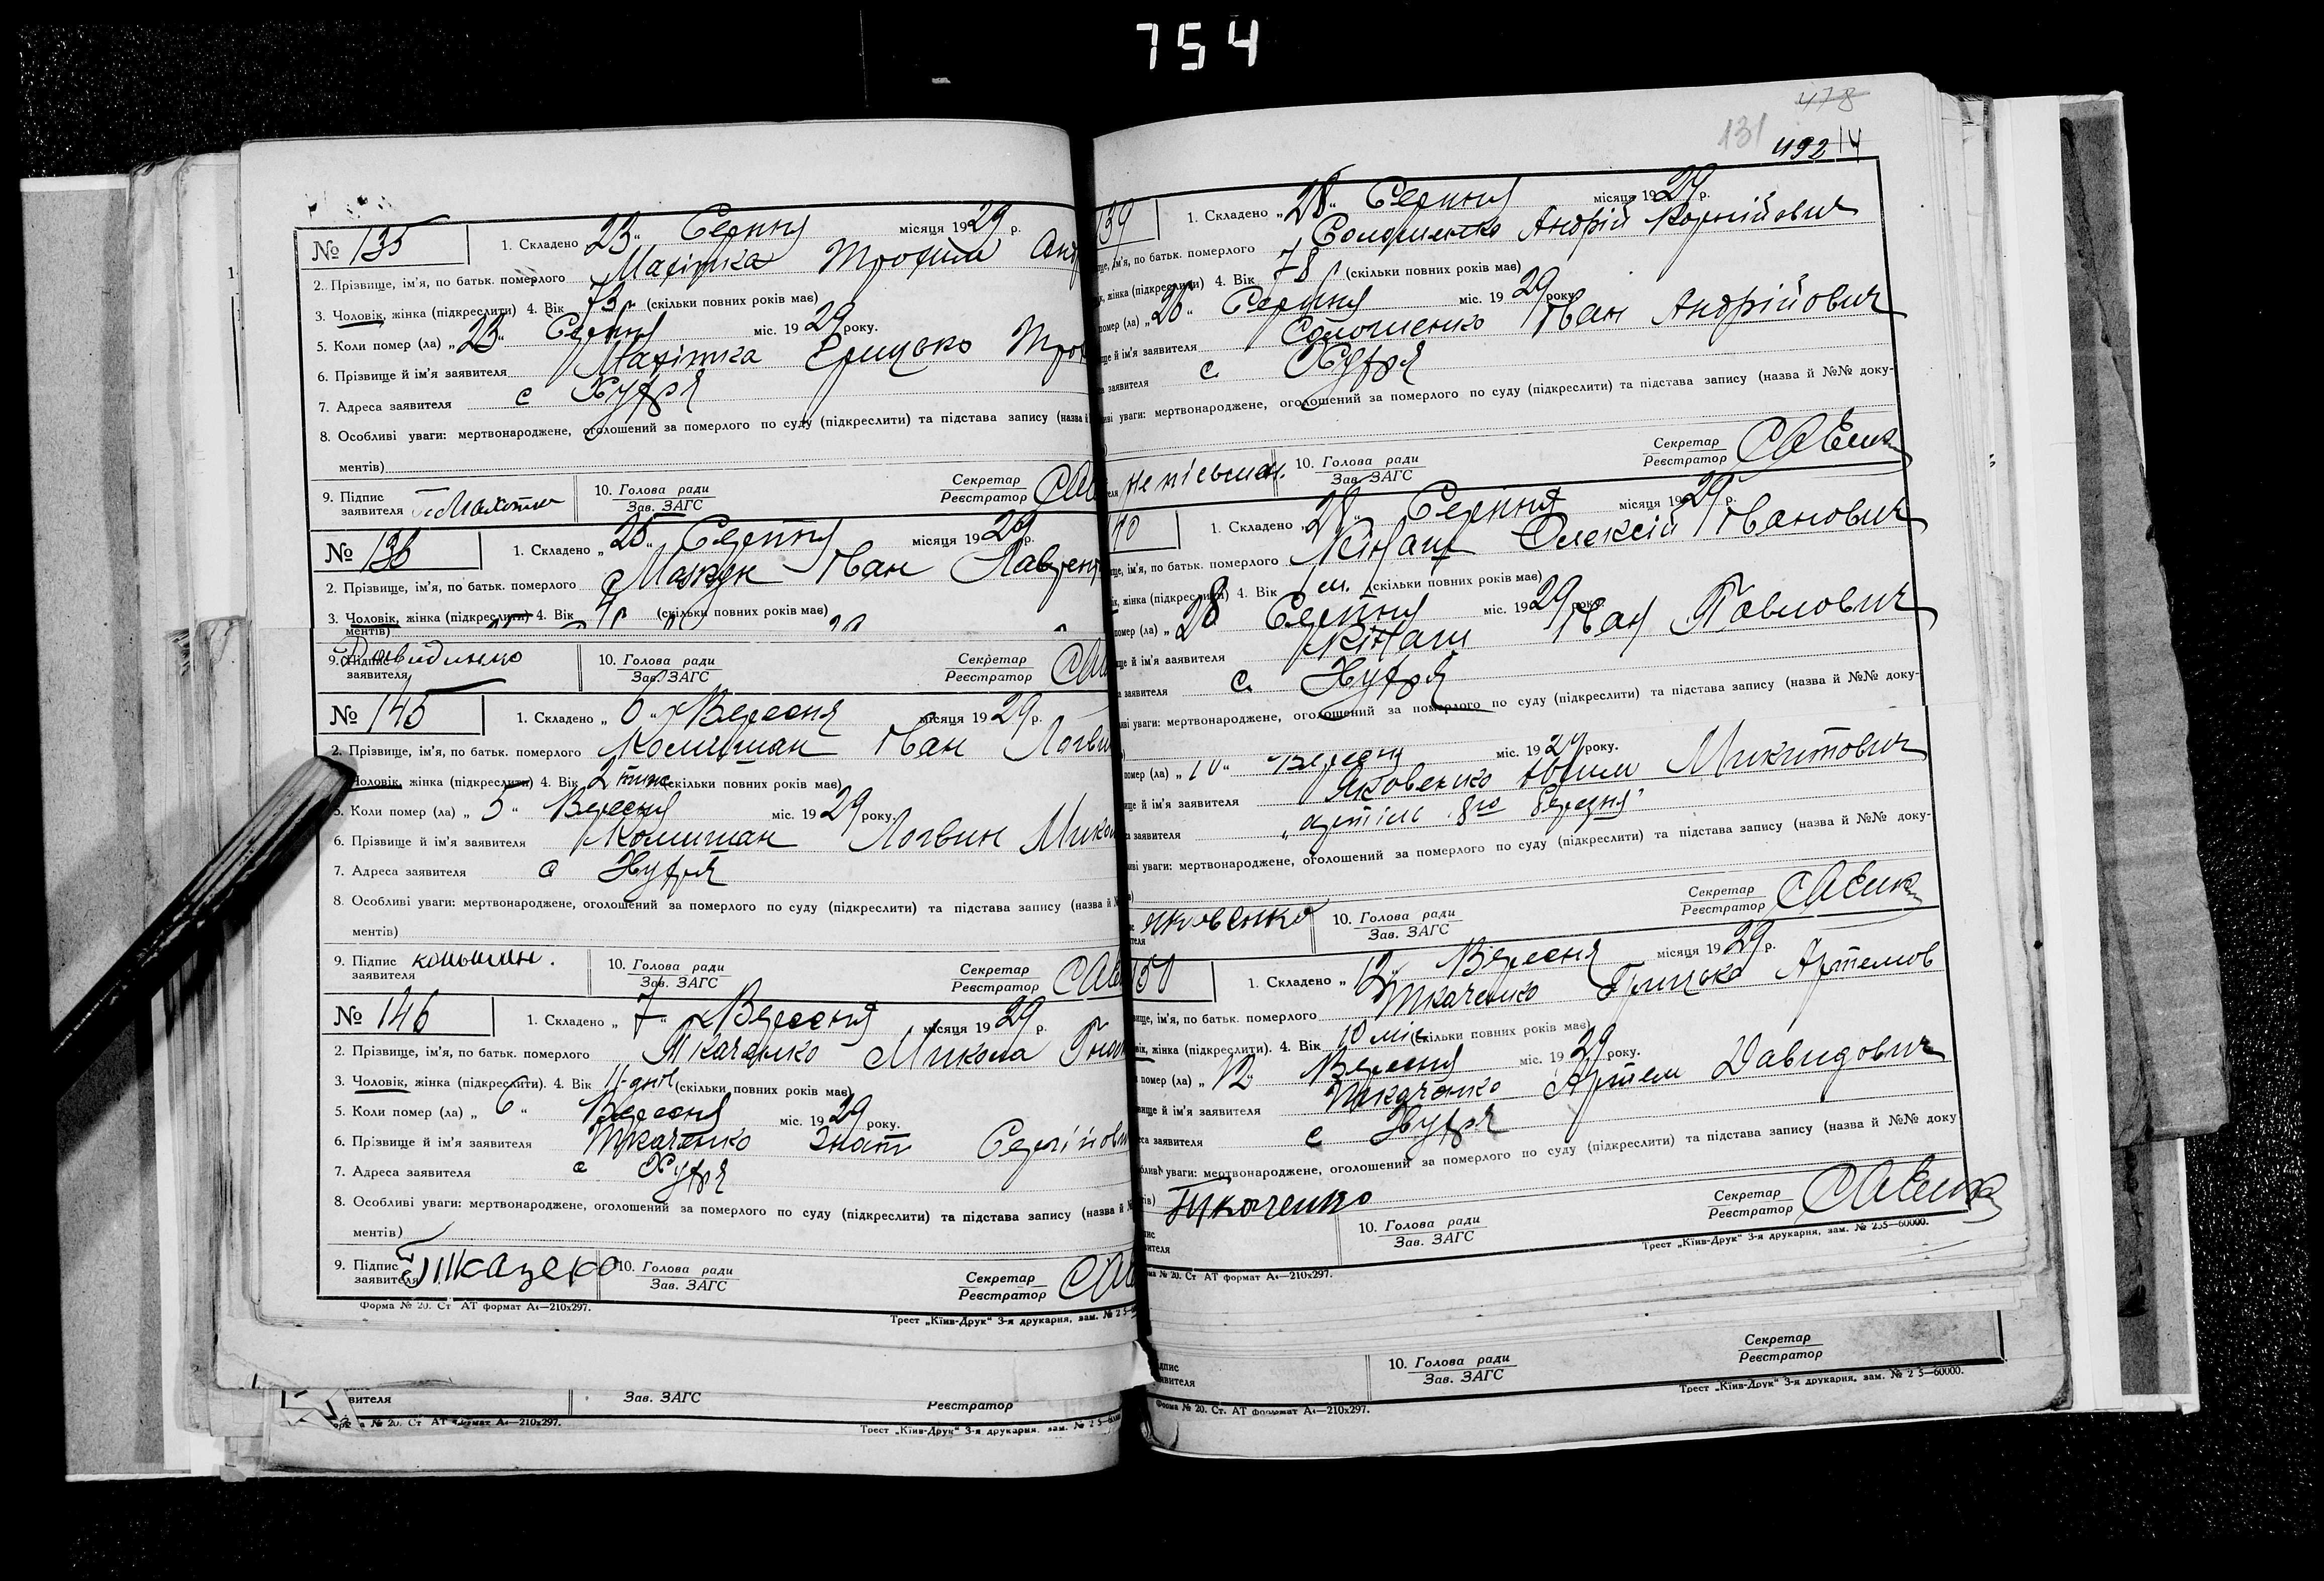 754
№ 135
1. Складено „23“ Серпня місяця 1929 р.
2. Прізвище, ім'я, по батьк. померлого Махітка Трохим
3. Чоловік, жінка (підкреслити) 4. Вік 73 р (скільки повних років має)
5. Коли помер (ла) „23“ Серпня міс. 1929 року.
6. Прізвище й ім'я заявителя Махітка Грицько
7. Адреса заявителя с Худря
8. Особливі уваги: мертвонароджене, оголошений за померлого по суду (підкреслити) та підстава запису (назва й
ментів)
9. Підпис заявителя
10. Голова ради Зав. ЗАГС
Секретар Реєстратор
№ 136
1. Складено „25“ Серпня місяця 1929 р.
2. Прізвище, ім'я, по батьк. померлого Іван
3. Чоловік, жінка (підкреслити) 4. Вік (скільки повних років має)
ментів)
9. Підпис заявителя
10. Голова ради Зав. ЗАГС
Секретар Реєстратор
№ 145
1. Складено „6“ Вересня місяця 1929 р.
2. Прізвище, ім'я, по батьк. померлого Колишман Іван
3. Чоловік, жінка (підкреслити) 4. Вік 2 тиж (скільки повних років має)
5. Коли помер (ла) „5“ Вересня міс. 1929 року.
6. Прізвище й ім'я заявителя Колишман Логвин
7. Адреса заявителя с Худря
8. Особливі уваги: мертвонароджене, оголошений за померлого по суду (підкреслити) та підстава запису (назва й
ментів)
9. Підпис заявителя
10. Голова ради Зав. ЗАГС
Секретар Реєстратор
№ 146
1. Складено „7“ Вересня місяця 1929 р.
2. Прізвище, ім'я, по батьк. померлого Ткаченко Микола
3. Чоловік, жінка (підкреслити). 4. Вік 11-днів (скільки повних років має)
5. Коли помер (ла) „6“ Вересня міс. 1929 року.
6. Прізвище й ім'я заявителя Ткаченко Гнат
7. Адреса заявителя с Худря
8. Особливі уваги: мертвонароджене, оголошений за померлого по суду (підкреслити) та підстава запису (назва й
ментів)
9. Підпис заявителя
10. Голова ради Зав. ЗАГС
Секретар Реєстратор
Форма № 20. Ст АТ формат А4—210х297.
Трест „Київ-Друк“ 3-я друкарня, зам. № 2
вителя
Зав. ЗАГС
Реєстратор
№ 20. Ст АТ формат А4—210х297.
Трест „Київ-Друк“ 3-я друкарня. зам. № 2 5
478
131
492
39
1. Складено „28“ Серпня місяця 1929 р.
ім'я, по батьк. померлого Андрій Корнійович
жінка (підкреслити) 4. Вік 78 р (скільки повних років має)
помер (ла) „26“ Серпня міс. 1929 року
й ім'я заявителя Іван Андрійович
заявителя с. Худря
уваги: мертвонароджене, оголошений за померлого по суду (підкреслити) та підстава запису (назва й №№ доку-
не письмен.
10. Голова ради Зав. ЗАГС
Секретар Реєстратор
40
1. Складено „28“ Серпня місяця 1929 р.
ім'я, по батьк. померлого Кінаш Олексій Іванович
жінка (підкреслити) 4. Вік (скільки повних років має)
помер (ла) „28 Серпня міс. 1929 року.
й ім'я заявителя Кінаш Іван Павлович
заявителя с. Худря
уваги: мертвонароджене, оголошений за померлого по суду (підкреслити) та підстава запису (назва й №№ доку-
помер (ла) „10“ Вересня міс. 1929 року.
й ім'я заявителя Яковенко Микитович
заявителя „артіль 8го березня“
уваги: мертвонароджене, оголошений за померлого по суду (підкреслити) та підстава запису (назва й №№ доку-
Яковенко
10. Голова ради Зав. ЗАГС
Секретар Реєстратор
150
1. Складено „12 Вересня місяця 1929 р.
ім'я, по батьк. померлого Ткаченко Грицько Артемов
жінка (підкреслити). 4. Вік 10 міс (скільки повних років має)
помер (ла) „12“ Вересня міс. 1929 року.
й ім'я заявителя Ткаченко Артем Давидович
заявителя с Худря
уваги: мертвонароджене, оголошений за померлого по суду (підкреслити) та підстава запису (назва й №№ доку
Ткаченко
10. Голова ради Зав. ЗАГС
Секретар Реєстратор
№ 20. Ст АТ формат А4—210х297.
Трест „Київ-Друк“ 3-я друкарня, зам. № 255—60000.
10. Голова ради Зав. ЗАГС
Секретар Реєстратор
Форма № 20. Ст. АТ формат А4—210х297.
Трест „Київ-Друк“ 3-я друкарня, зам. № 2 5—60000.